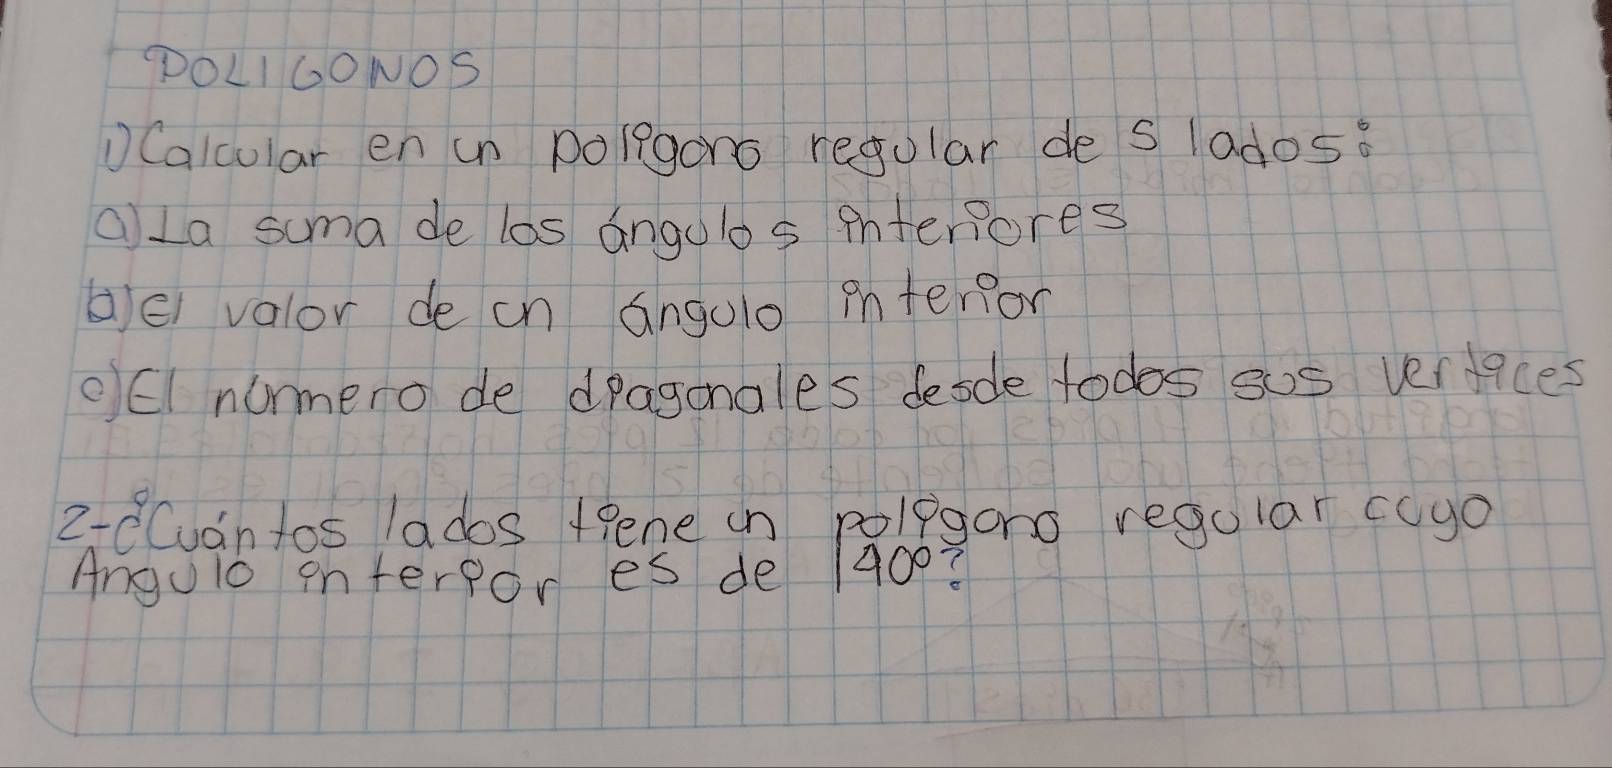 POLIGONOS
1) Calcular en un poligono regular de 5 lados:
a) La suma de los ángulos interiores
b) El valor de un ángulo interior
c) El númmero de diagonales desde todos sus vertices
2- ¿Cuántos lados tiene un poligono regular cuyo
Angulo interior es de 140°?